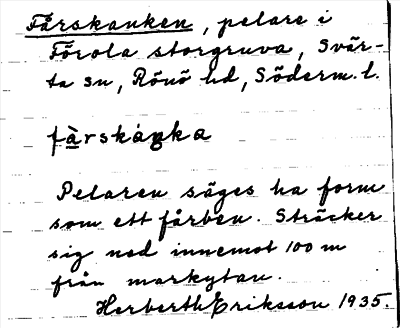 Fårskanken, pelare i
Förola storgruva, Svär-
ta sn, Rönö hd, Söderm. l.
fàrskáŋka
Pelaren säges ha form
som ett fårben. Sträcker
sig ned innemot 100 m
från markytan.
Herberth Eriksson 1935.